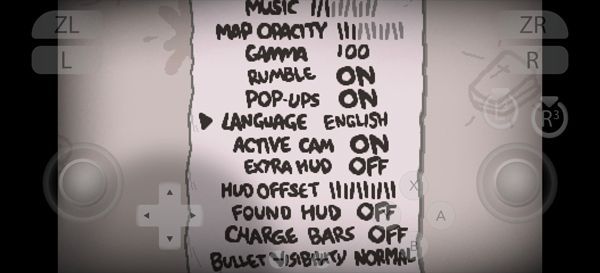 MUSIC
ZL
ZR
MAP OPACITY
L
GAMMA 100
R
RUMBLE ON
POP-UPS ON
R3
LANGUAGE ENGLISH
ACTIVE CAM ON
EXTRA HUD OFF
HUD OFFSET
X
FOUND HUD OFF
A
CHARGE BARS OFF
B
BULLET VISIBILITY NORMAL